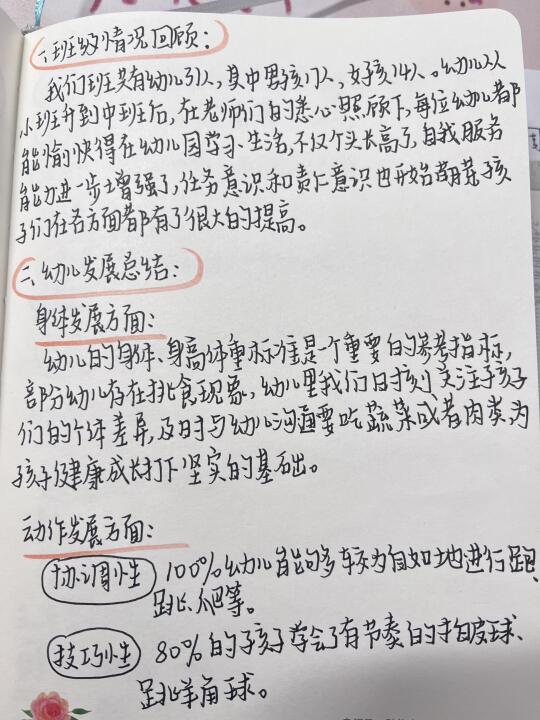 一、班级情况回顾：
我们班共有幼儿31人，其中男孩17人，女孩14人。幼儿从
小班升到中班后，在老师们的悉心照顾下，每位幼儿都
能愉快得在幼儿园学习、生活，不仅个头长高了，自我服务
能力进一步增强了，任务意识和责任意识也开始萌芽孩
子们在各方面都有了很大的提高。
二、幼儿发展总结：
身体发展方面：
幼儿的身体、身高体重标准是一个重要的参考指标，
部分幼儿存在挑食现象，幼儿里我们时刻关注孩子
们的个体差异，及时与幼儿沟通要吃蔬菜或者肉类为
孩子健康成长打下坚实的基础。
动作发展方面：
协调性 100%幼儿能够较为自如地进行跑、
跳、爬等。
技巧性 80%的孩子学会了有节奏的拍皮球、
跳羊角球。